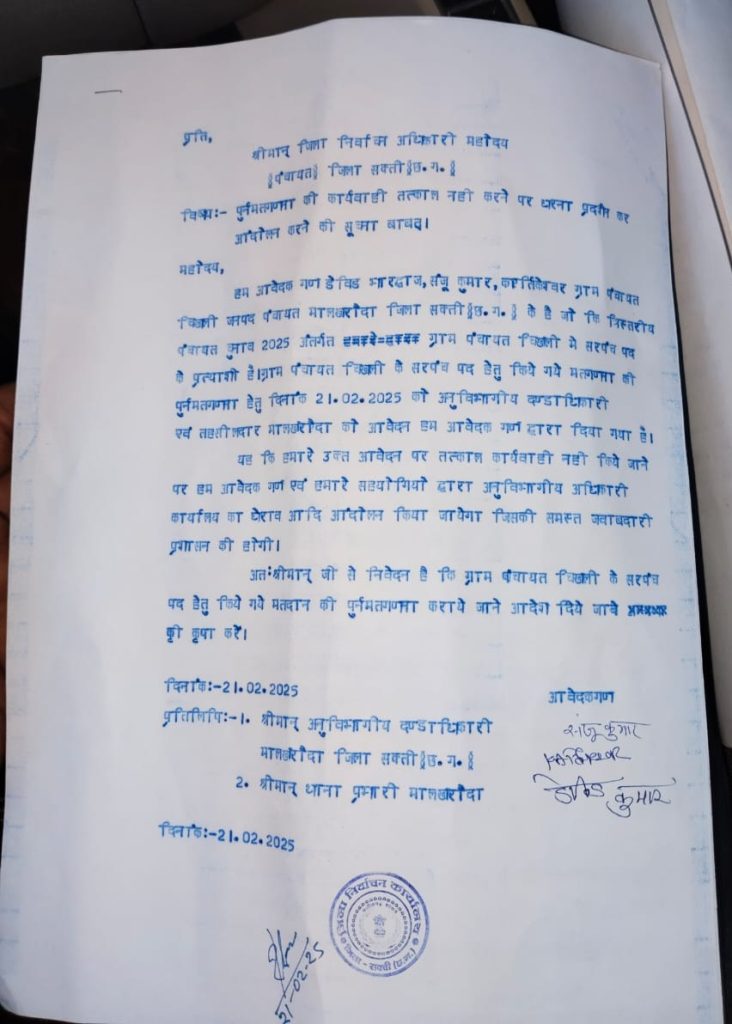 प्रति,
श्रीमान् जिला निर्वाचन अधिकारी महोदय
(पंचायत) जिला सक्ती (छ.ग.)
विषय:- पुर्नमतगणना की कार्यवाही तत्काल नही करने पर धरना प्रदर्शन कर
आंदोलन करने की सूचना बाबत्।
महोदय,
हम आवेदक गण डेविड भारद्वाज, संजू कुमार, कार्तिकेश्वर ग्राम पंचायत
चिखली जनपद पंचायत मालखरौदा जिला सक्ती (छ.ग.) के है जो कि त्रिस्तरीय
पंचायत चुनाव 2025 अंतर्गत ग्राम पंचायत चिखली मे सरपंच पद
के प्रत्याशी है।ग्राम पंचायत चिखली के सरपंच पद हेतु किये गये मतगणना की
पुर्नमतगणना हेतु दिनांक 21.02.2025 को अनुविभागीय दण्डाधिकारी
एवं तहसीलदार मालखरौदा को आवेदन हम आवेदक गण द्वारा दिया गया है।
यह कि हमारे उक्त आवेदन पर तत्काल कार्यवाही नही किये जाने
पर हम आवेदक गण एवं हमारे सहयोगियों द्वारा अनुविभागीय अधिकारी
कार्यालय का घेराव आदि आंदोलन किया जायेगा जिसकी समस्त जवाबदारी
प्रशासन की होगी।
अतःश्रीमान् जी से निवेदन है कि ग्राम पंचायत चिखली के सरपंच
पद हेतु किये गये मतदान की पुर्नमतगणना कराये जाने आदेश दिये जावे
की कृपा करें।
दिनांक:-21.02.2025
आवेदकगण
प्रतिलिपि:-1. श्रीमान् अनुविभागीय दण्डाधिकारी
संजू कुमार
मालखरौदा जिला सक्ती (छ.ग.)
कार्तिकेश्वर
2. श्रीमान् थाना प्रभारी मालखरौदा
डेविड कुमार
दिनांक:-21.02.2025
जिला निर्वाचन कार्यालय
जिला - सक्ती (छ.ग.)
21-02-25